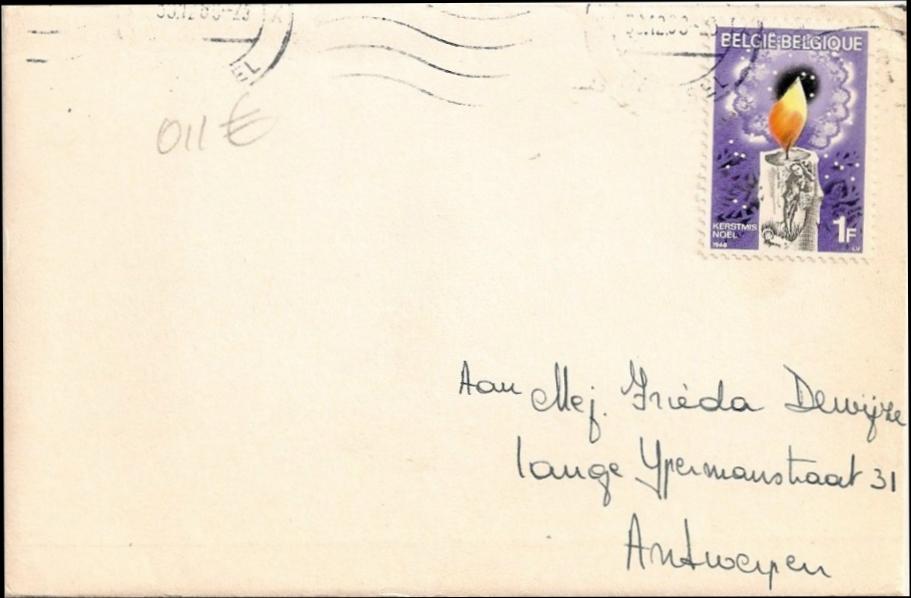 BELGIË-BELGIQUE
KERSTMIS
NOËL
1968
1F
011 €
Aan Mej. Frieda Dewijze
lange Ypermanstraat 31
Antwerpen